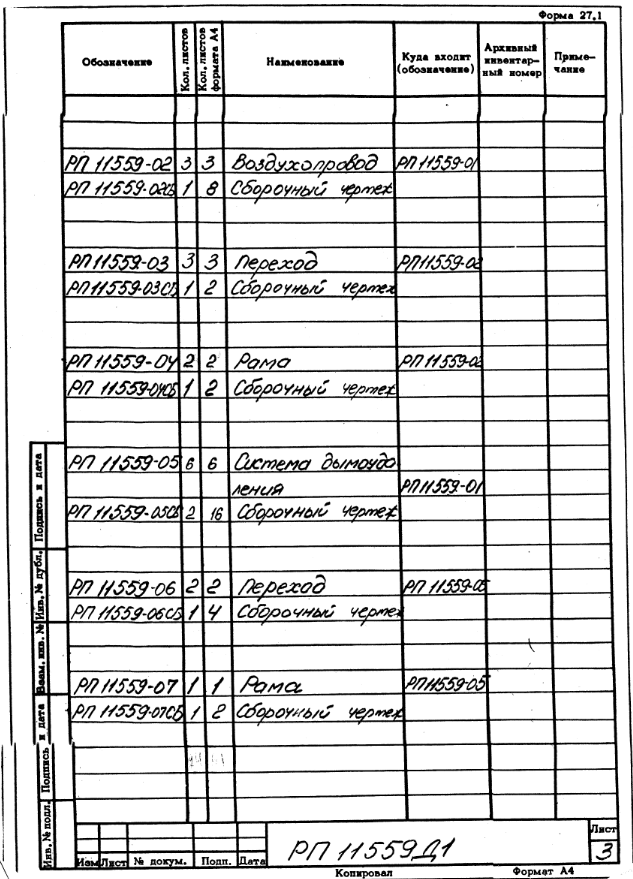 Форма 27.1
Обозначение Кол. листов Кол. листов формата А4 Наименование Куда входит (обозначение) Архивный инвентарный номер Примечание
РП 11559-02 3 3 Воздухопровод РП 11559-01
РП 11559-02СБ 1 8 Сборочный чертеж
РП 11559-03 3 3 Переход РП 11559-02
РП 11559-03СБ 1 2 Сборочный чертеж
РП 11559-04 2 2 Рама РП 11559-02
РП 11559-04СБ 1 2 Сборочный чертеж
РП 11559-05 6 6 Система дымоуда
ления РП 11559-01
РП 11559-05СБ 2 16 Сборочный чертеж
РП 11559-06 2 2 Переход РП 11559-05
РП 11559-06СБ 1 4 Сборочный чертеж
РП 11559-07 1 1 Рама РП 11559-05
РП 11559-07СБ 1 2 Сборочный чертеж
Инв. № подл. Подпись и дата Взам. инв. № Инв. № дубл. Подпись и дата
Изм Лист № докум. Подп. Дата
РП 11559Д1
Лист
3
Копировал Формат А4